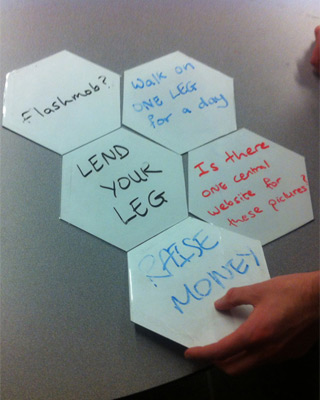 Flashmob?
Walk on
ONE LEG
for a day
LEND
YOUR
LEG
Is there
ONE central
website for
these pictures?
RAISE
MONEY